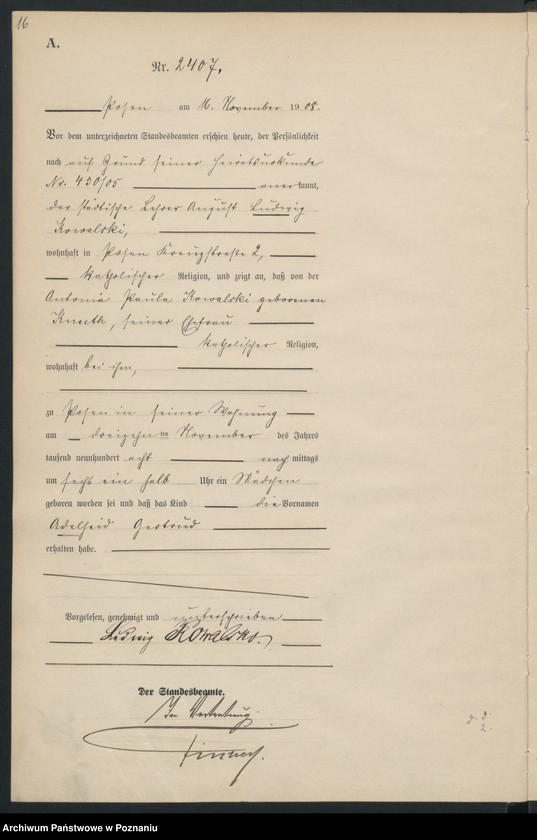 16
A.
Nr. 2407.
Posen am 16. November 1908.
Vor dem unterzeichneten Standesbeamten erschien heute, der Persönlichkeit
nach auf Grund seiner Heiratsurkunde
Nr. 430/05 anerkannt,
der städtische Lehrer August Ludwig
Kowalski,
wohnhaft in Posen Kreuzstraße 2,
katholischer Religion, und zeigt an, daß von der
Antonia Paula Kowalski geborenen
Knuth, seiner Ehefrau
katholischer Religion,
wohnhaft bei ihm,
zu Posen in seiner Wohnung
am dreizehnten November des Jahres
tausend neunhundert acht nachmittags
um sechs ein halb Uhr ein Mädchen
geboren worden sei und daß das Kind die Vornamen
Adelheid Gertrud
erhalten habe.
Vorgelesen, genehmigt und unterschrieben
Ludwig Kowalski.
Der Standesbeamte.
In Vertretung.
Archiwum Państwowe w Poznaniu